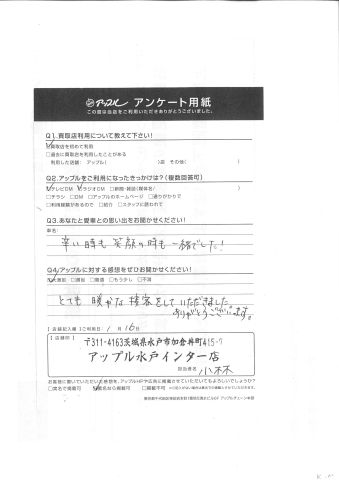 アップル アンケート用紙
この度は当店をご利用いただきありがとうございました。
Q1.買取店利用について教えて下さい!
☑買取店を初めて利用
□過去に買取店を利用したことがある
利用した店舗: アップル( )店 その他( )
Q2.アップルをご利用になったきっかけは?(複数回答可)
☑テレビCM ☑ラジオCM □新聞・雑誌(媒体名/ )
□チラシ □DM □アップルのホームページ □通りがかりで
□利用経験があるので □紹介 □スタッフに誘われて
Q3.あなたと愛車との思い出をお聞かせください!
車名:
辛い時も 笑顔の時も 一緒でした!
Q4.アップルに対する感想をぜひお聞かせください!
☑大満足 □満足 □普通 □もう少し □不満
とても 暖かな 接客をして いただきました
ありがとうございます。
【店舗記入欄】ご利用日: 1月16日
【店舗印】
〒311-4163茨城県水戸市加倉井町415-
アップル水戸インター店
担当者名 小林
お客様に書いていただいた感想を、アップルHPや広告に掲載させていただいてもよろしいでしょうか?
□実名で掲載可 ☑匿名なら掲載可 □掲載不可